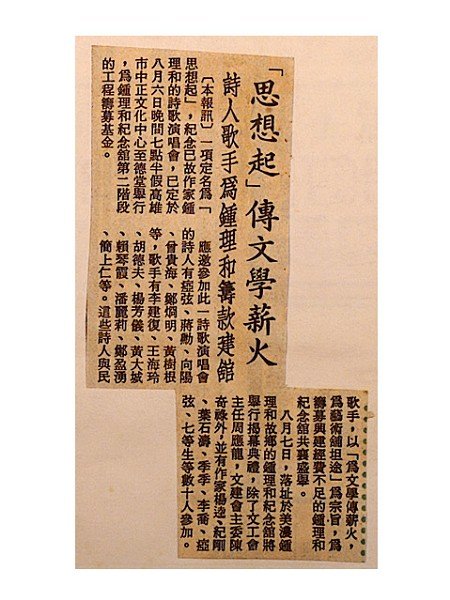 「思想起」傳文學薪火
詩人歌手為鍾理和籌款建舘
〔本報訊〕一項定名為「
思想起」，紀念已故作家鍾
理和的詩歌演唱會，已定於
八月六日晚間七點半假高雄
市中正文化中心至德堂舉行
，為鍾理和紀念舘第二階段
的工程籌募基金。
應邀參加此一詩歌演唱會
的詩人有瘂弦、蔣勳、向陽
、曾貴海、鄭烱明、黃樹根
等，歌手有李建復、王海玲
、胡德夫、楊芳儀、黃大城
、賴琴霞、潘麗莉、鄭盈湧
、簡上仁等。這些詩人與民
歌手，以「為文學傳薪火，
為藝術舖坦途」為宗旨，為
籌募興建經費不足的鍾理和
紀念舘共襄盛舉。
八月七日，落址於美濃鍾
理和故鄉的鍾理和紀念舘將
舉行揭幕典禮，除了文工會
主任周應龍，文建會主委陳
奇祿外，並有作家楊逵、紀剛
、葉石濤、季季、李喬、瘂
弦、七等生等數十人參加。